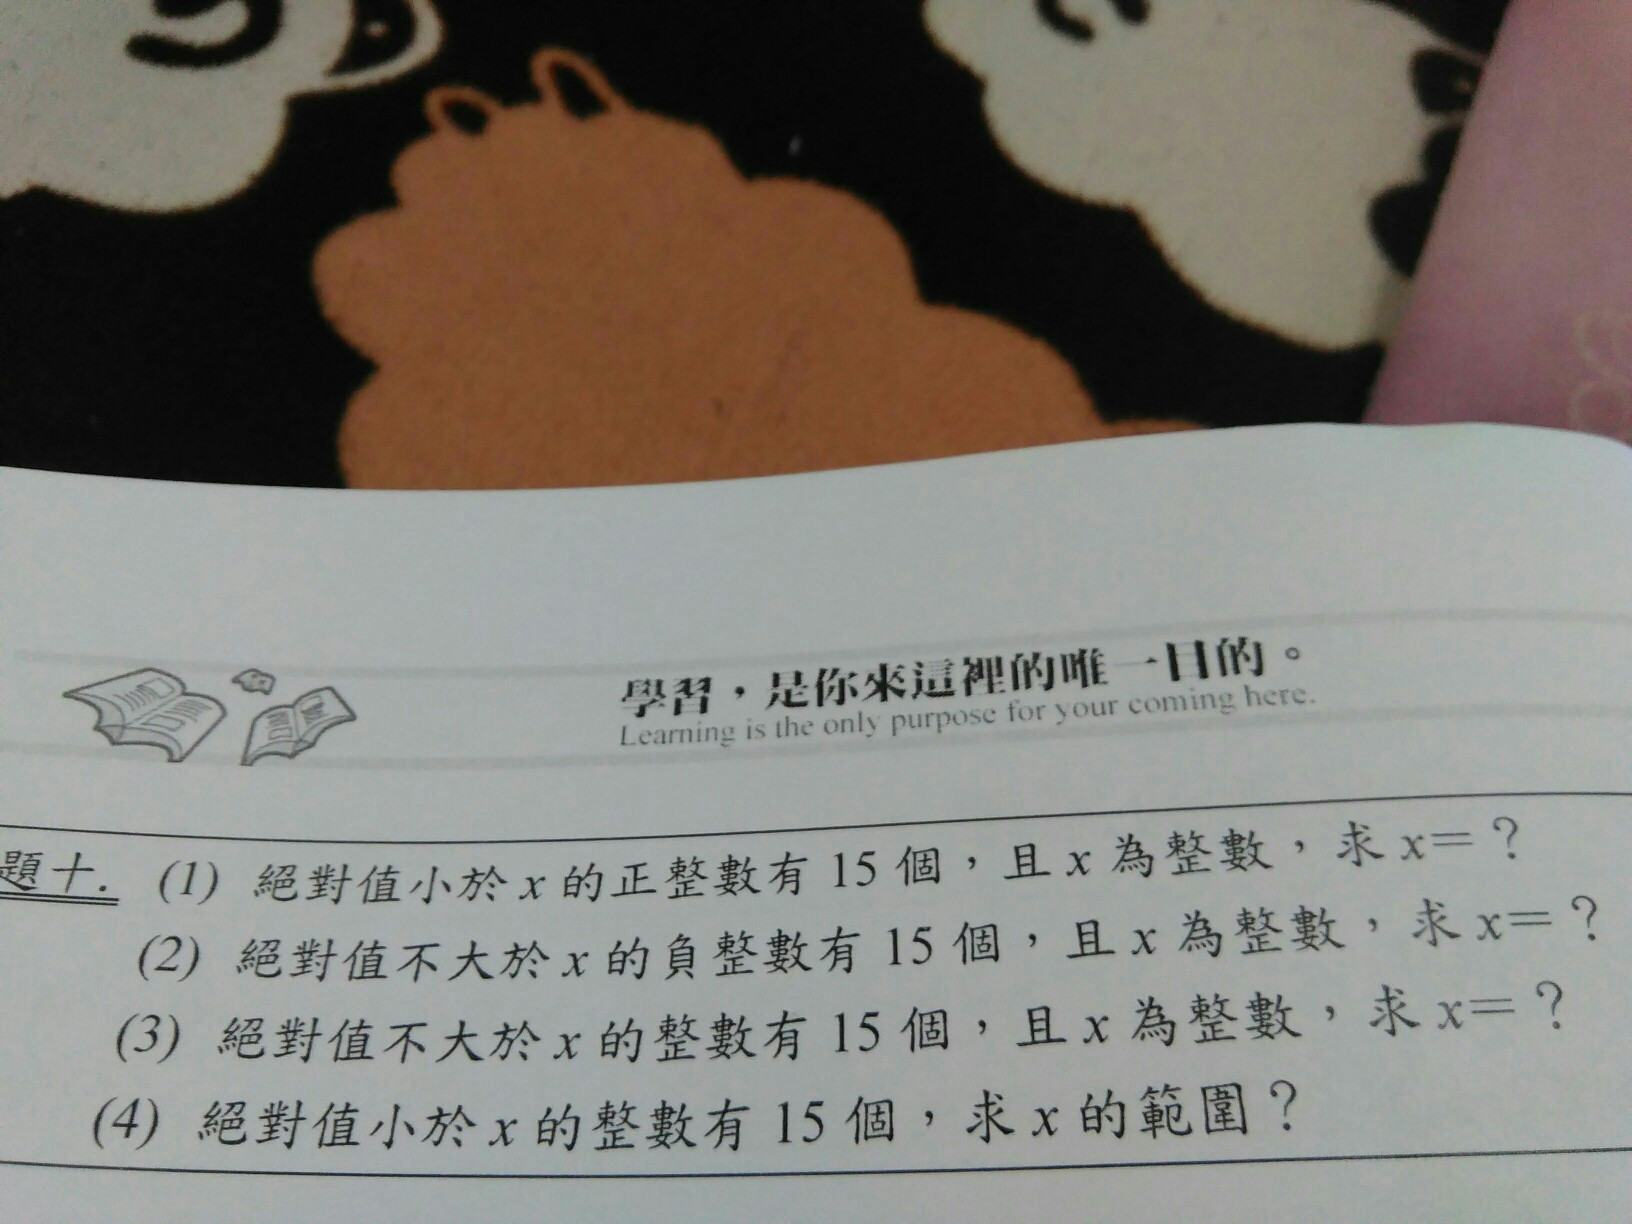 學習，是你來這裡的唯一目的。
Learning is the only purpose for your coming here.
題十. (1) 絕對值小於 x 的正整數有 15 個，且 x 為整數，求 x＝？
(2) 絕對值不大於 x 的負整數有 15 個，且 x 為整數，求 x＝？
(3) 絕對值不大於 x 的整數有 15 個，且 x 為整數，求 x＝？
(4) 絕對值小於 x 的整數有 15 個，求 x 的範圍？